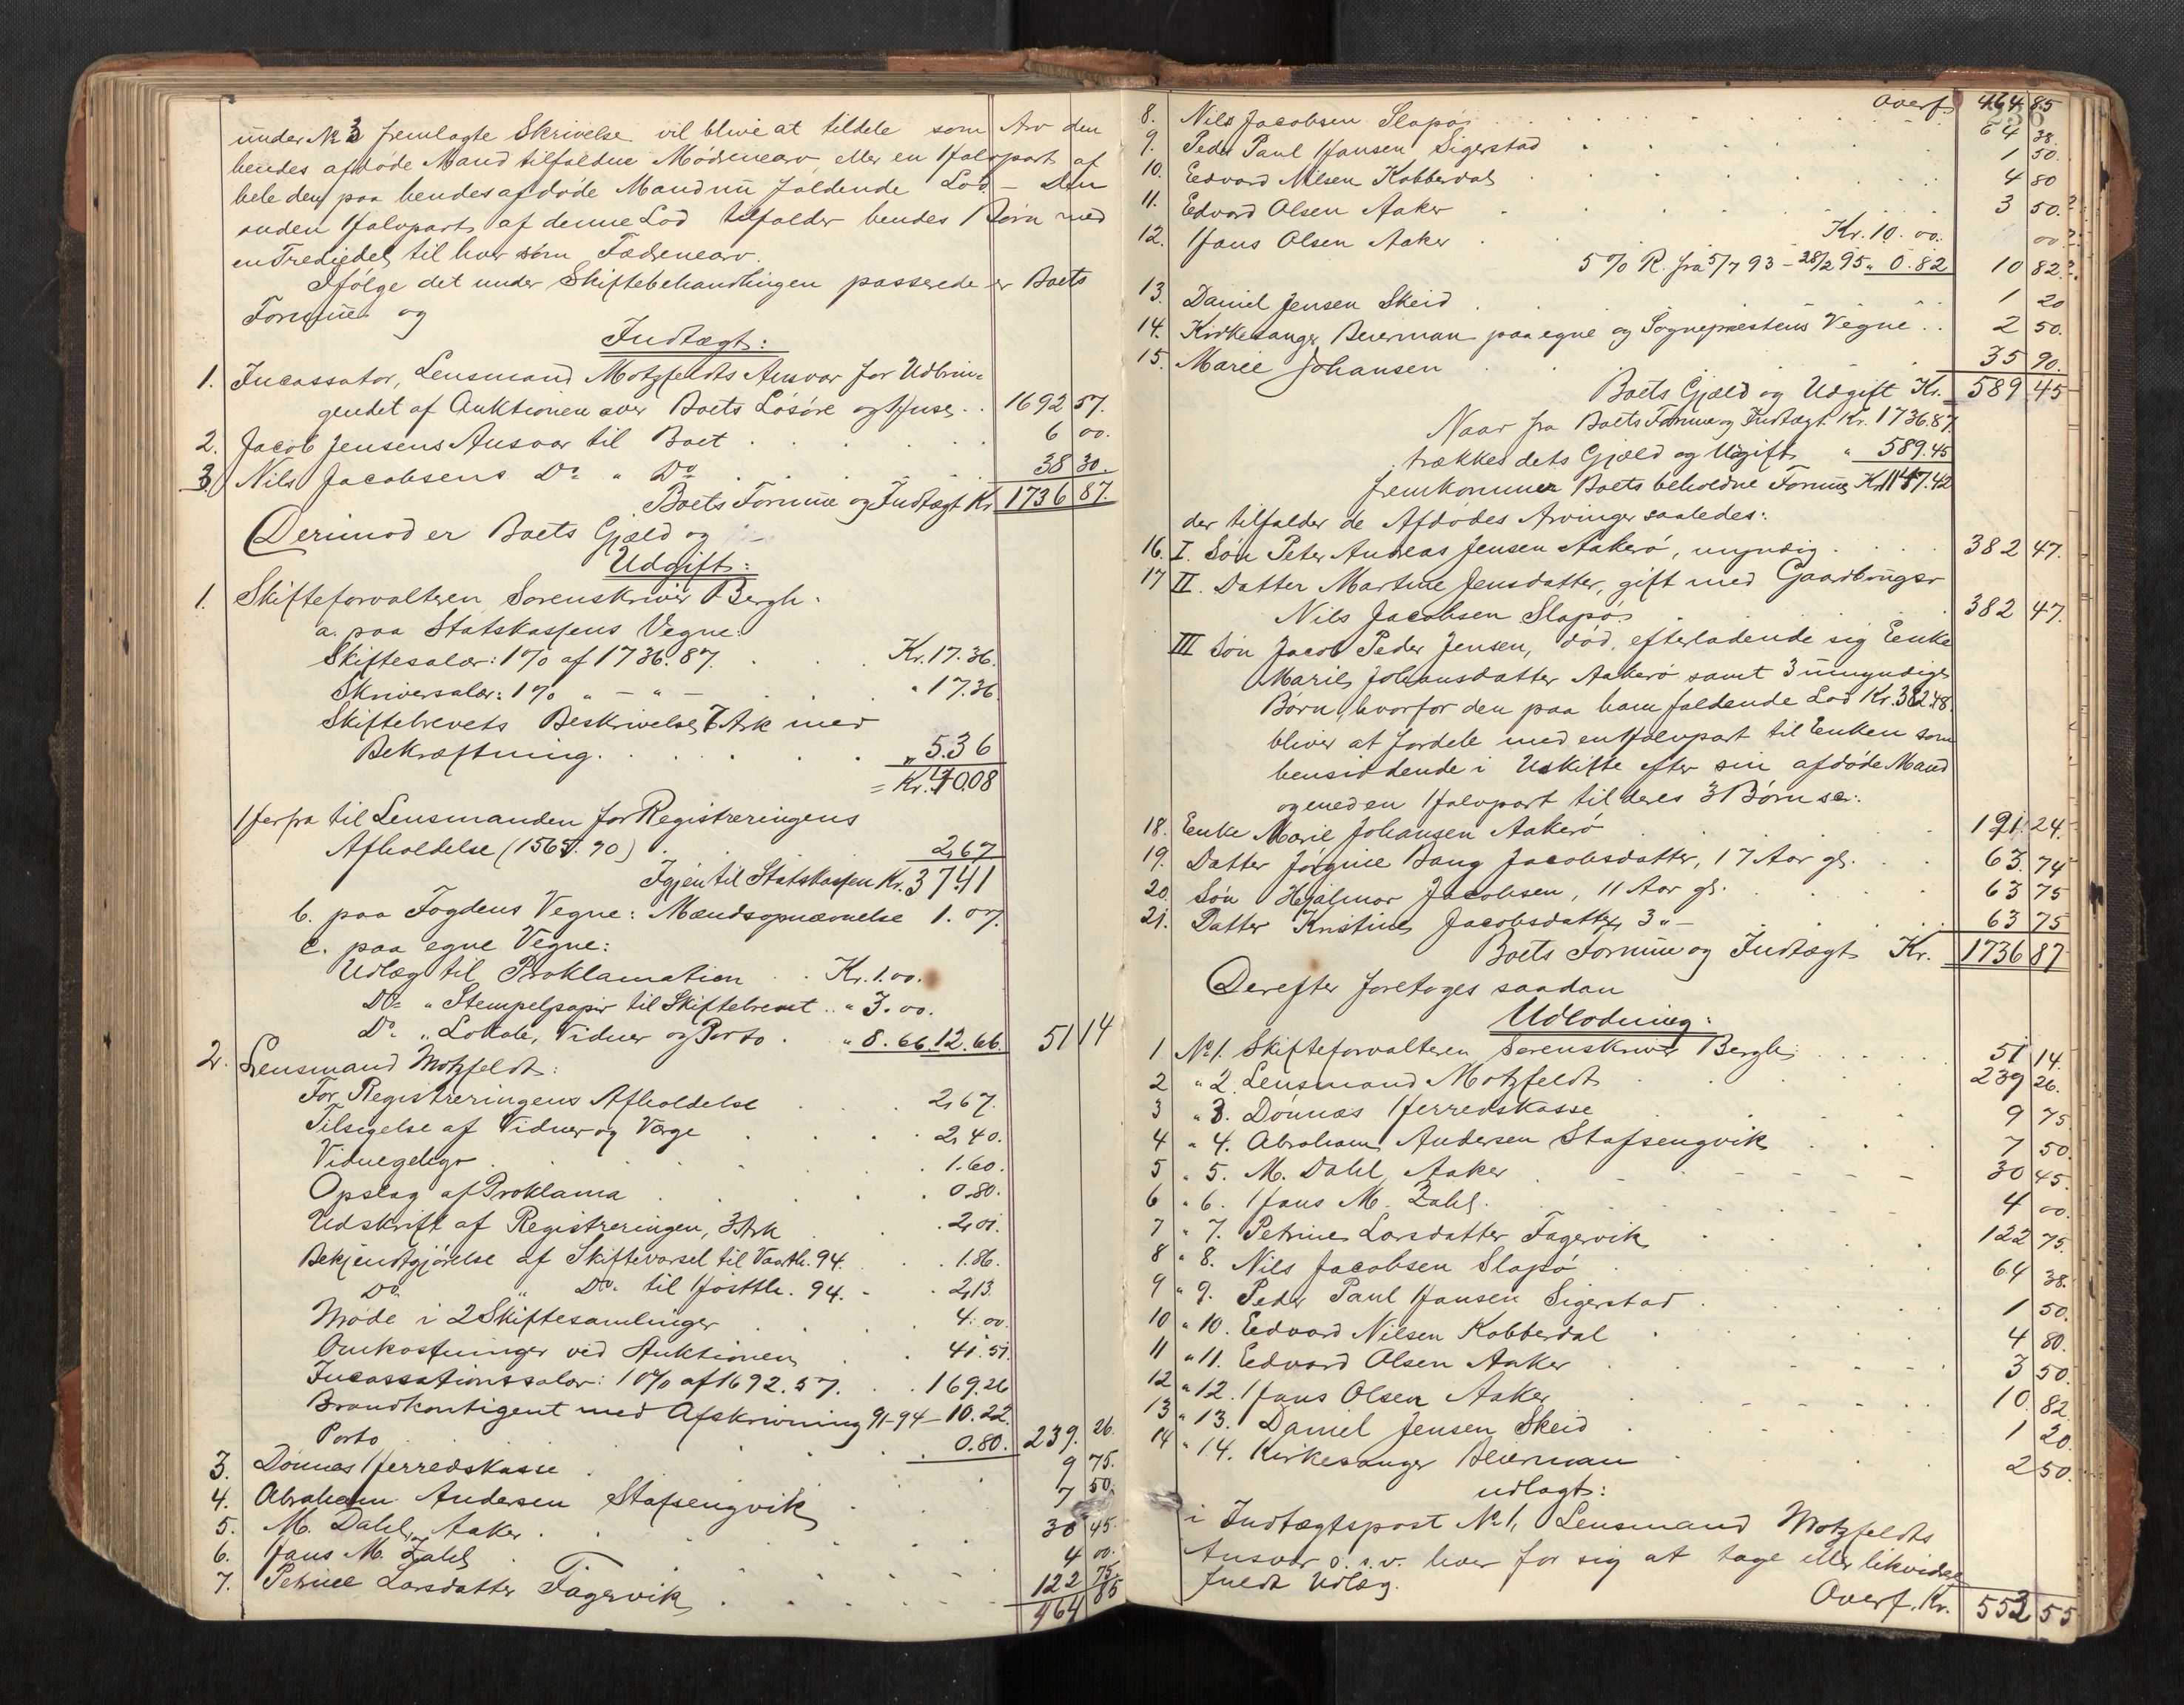 under No 3 fremlagte Skrivelse vil blive at tildele som Arv den
hendes afdøde Mand tilfaldne Mødrenearv eller en Halvpart af
hele den paa hendes afdøde Mand nu faldende Lod. – Den
anden Halvpart af denne Lod tilfalder hendes Børn med
en Trediedel til hver som Fædrenearv.
Ifølge det under Skiftebehandlingen passerede er Boets
Formue og
Indtægt:
1. Incassator, Lensmand Motzfeldts Ansvar for Udbrin=
gendet af Auktionen over Boets Løsøre og Huse . . 1692 57.
2. Jacob Jensens Ansvar til Boet . . . 6 00.
3. Nils Jacobsens Do " Do . . . 38 30.
Boets Formue og Indtægt Kr. 1736 87.
Derimod er Boets Gjæld og
Udgift:
1. Skifteforvalteren Sorenskriver Bergh:
a. paa Statskassens Vegne:
Skiftesalær: 1% af 1736.87. . . Kr. 17.36.
Skriversalær: 1% " – " – . . " 17.36.
Skiftebrevets Beskrivelse 7 Ark med
Bekræftning. . . . " 5.36
= Kr. 40.08
Herfra til Lensmanden for Registreringens
Afholdelse (1565.90) . 2,67
Igjen til Statskassen Kr. 37.41
b. paa Fogdens Vegne: Mændsopnævnelse 1.07.
c. paa egne Vegne:
Udlæg til Proklamation . . Kr. 1.00.
Do " Stempelpapir til Skiftebrevet . . " 3.00.
Do " Lokale, Vidner og Porto . " 8.66. 12.66. 51 14
2. Lensmand Motzfeldt:
For Registreringens Afholdelse . . . 2,67.
Tilsigelse af Vidner og Værge . . . 2,40.
Vidnegebyr . . . 1.60.
Opslag af Proklama . . . 0.80.
Udskrift af Registreringen, 3 Ark . 2,01.
Bekjendtgjørelse af Skiftevarsel til Vaarth. 94. . . 1.86.
Do " Do til Høstth. 94. . 2,13
Møde i 2 Skiftesamlinger . . . 4.00.
Omkostninger ved Auktionen . . 41.51.
Incassationssalær: 10% af 1692.57. . . 169.26
Brandkontigent med Afskrivning 91-94 – 10.22.
Porto . . . 0.80. 239. 26.
3. Dønnes Herredskasse . . . 9 75.
4. Abraham Andersen Stafsengvik . . 7 50.
5. M. Dahl, Aaker . . . 30 45.
6. Hans M. Zahl . . . 4 00.
7. Petrine Larsdatter Fagervik . . . 122 75.
464 85
Overf. 464 85
236
8. Nils Jacobsen Slapø . . . 64 38.
9. Peder Paul Hansen Sigerstad . . . 1 50.
10. Eedvard Nilsen Kobberdal . . . 4 80
11. Edvard Olsen Aaker . . . 3 50.
12. Hans Olsen Aaker . . . Kr. 10.00.
5% R. fra 5/7 93 – 28/2 95 " 0.82 10 82.
13. Daniel Jensen Skeid . . . 1 20
14. Kirkesanger Beierman paa egne og Sognepræstens Vegne . . 2 50.
15. Marie Johansen . . . 35 90.
Boets Gjæld og Udgift Kr. 589 45
Naar fra Boets Formue og Indtægt Kr. 1736.87.
trækkes dets Gjæld og Udgift " 589.45
fremkommer Boets beholdne Formue Kr. 1147.42
der tilfalder de Afdødes Arvinger saaledes:
16. I. Søn Peter Andreas Jensen Aakerø, myndig . . . 382 47.
17 II. Datter Martine Jensdatter, gift med Gaardbruger
Nils Jacobsen Slapø . . . 382 47.
III Søn Jacob Peder Jensen, død, efterladende sig Enke
Marie Johansdatter Aakerø samt 3 umyndige
Børn, hvorfor den paa ham faldende Lod Kr. 382.48
bliver at fordele med en Halvpart til Enken som
hensiddende i Uskifte efter sin afdøde Mand
og med en Halvpart til deres 3 Børn sær:
18. Enke Marie Johansen Aakerø . . . 191. 24.
19. Datter Jørgine Bang Jacobsdatter, 17 Aar gl. . . 63. 74
20. Søn Hjalmar Jacobsen, 11 Aar gl. . . 63 75
21. Datter Kristine Jacobsdatter, 3 " – . . . 63 75
Boets Formue og Indtægt Kr. 1736 87
Derefter foretages saadan
Udlodning:
1 No 1. Skifteforvalteren Sorenskriver Bergh . . . 51 14.
2 " 2. Lensmand Motzfeldt . . . 239 26.
3 " 3. Dønnes Herredskasse . . . 9 75
4 " 4. Abraham Andersen Stafsengvik . . . 7 50.
5 " 5. M. Dahl, Aaker . . . 30 45.
6 " 6. Hans M. Zahl . . . 4 00.
7 " 7. Petrine Larsdatter Fagervik . . . 122 75.
8 " 8. Nils Jacobsen Slapø . . . 64 38.
9 " 9. Peder Paul Hansen Sigerstad . . . 1 50.
10 " 10. Eedvard Nilsen Kobberdal . . . 4 80.
11 " 11. Eedvard Olsen Aaker . . . 3 50.
12 " 12. Hans Olsen Aaker . . . 10 82.
13 " 13. Daniel Jensen Skeid . . . 1 20.
14 " 14. Kirkesanger Beierman . . . 2 50.
udlagt:
i Indtægtspost No 1, Lensmand Motzfeldts
Ansvar o. s. v. hver for sig at tage eller likvidere
fuldt Udlæg.
Overf. Kr. 553 55